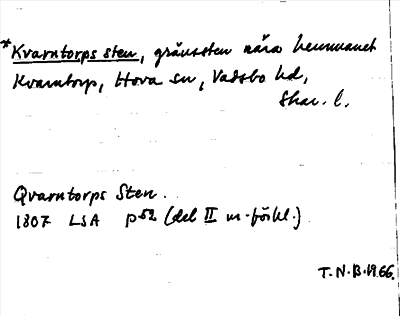 *Kvarntorps sten, gränssten nära hemmanet
Kvarntorp, Hova sn, Vadsbo hd,
Skar. l.
Qvarntorps Sten.
1807 LSA P52 (del II m. förkl.)
T.N.B. 1966.